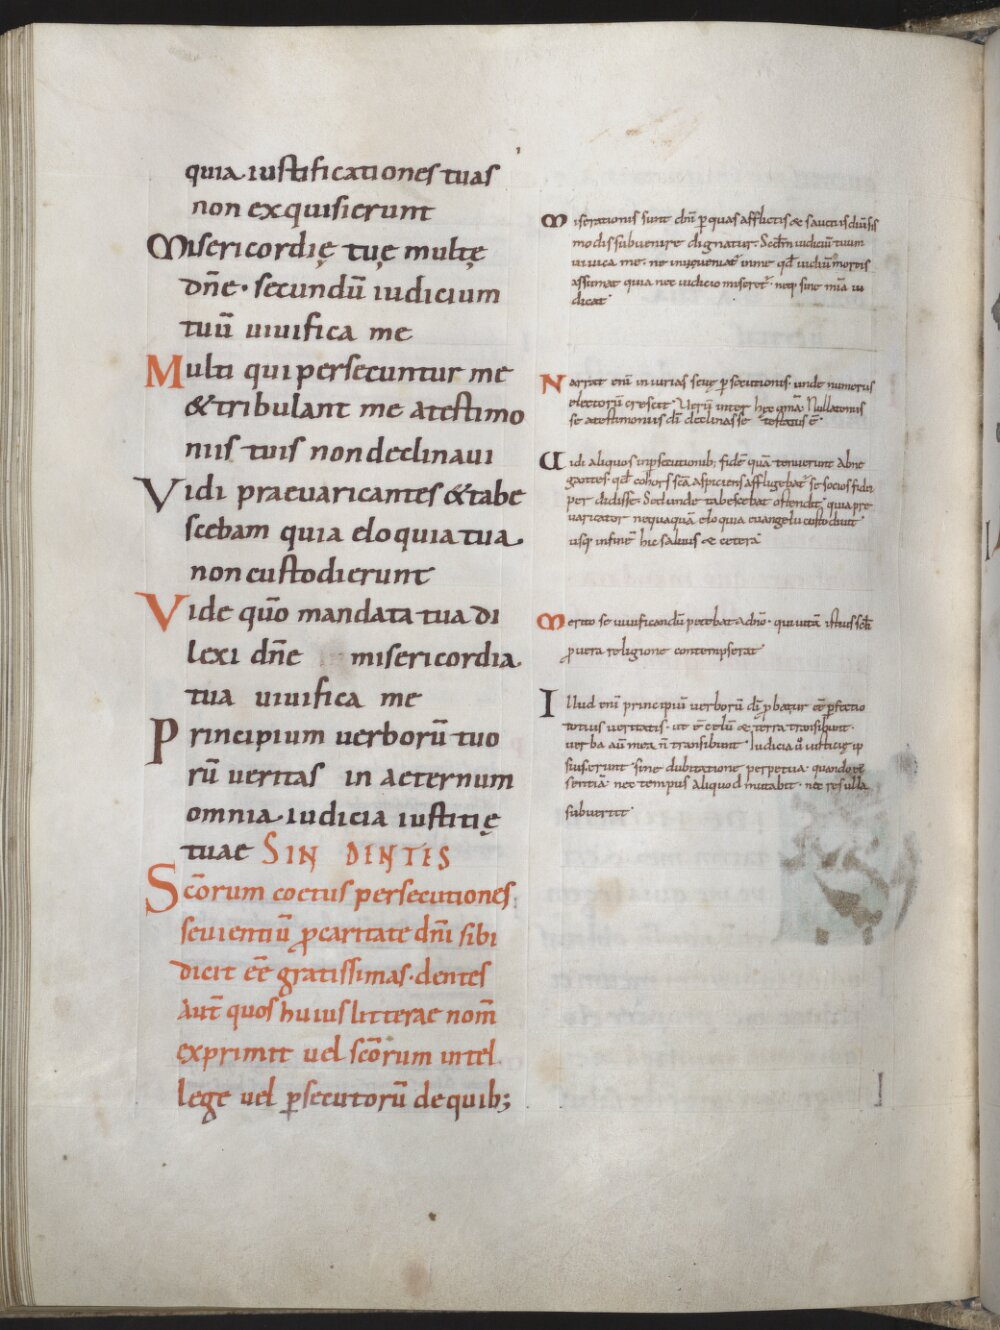 quia iustificationes tuas
non exquisierunt
Misericordię tuę multę
dn̄e · secundū iudicium
tuū uiuifica me
Multi qui persecuntur me
&tribulant me atestimo
niis tuis non declinaui
Vidi praeuaricantes &tabe
scebam quia eloquia tua
non custodierunt
Vide quō mandata tua di
lexi dn̄e misericordia
tua uiuifica me
Principium uerborū tuo
rū ueritas in aeternum
omnia iudicia iustitię
tuae SIN DENTES
Sc̄orum coetus persecutiones
seuientiū ꝓ caritate dn̄i sibi
dicit eē gratissimas · dentes
aut̄ quos huius litterae nom̄
exprimit uel sc̄orum intel
lege uel ꝑsecutorū de quib;
Miserationis sunt dn̄i ꝑ quas afflictis & sauciis
modis subuenire dignatur Scd̄m iudiciū tuum
uiuica me · ne
assumat quia nec iudicio miseret̄ · neq; sine mīa iu
dicat
Narrat enī iniurias seuę ꝑsecutionis · unde numerus
electorū crescit
se atestimoniis dī declinasse testatus ē ·
Vidi aliquos inꝑsecutionib; fidē quā tenuerunt abne
gantes · qd̄ cohors sc̄a aspiciens affligebat̄ se socios fidei
perdidisse · Sed unde tabescebat ostendit quia pre
uaricator nequaquā eloquia euangelii custodiuit
usq; in finē hic saluus & cetera
Merito se uiuificandū petebat adn̄o · qui uitā istius sc̄li
ꝓ uera religione contempserat
Illud enī principiū uerborū dī ꝓbatur eē ꝑfectio
totius ueritatis · ut ē celū & terra transibunt ·
uerba aū mea n̄ transibunt Iudicia
sine dubitatione perpetua · quando
sententiā · nec tempus aliquod mutabit · nec res ulla
subuertit